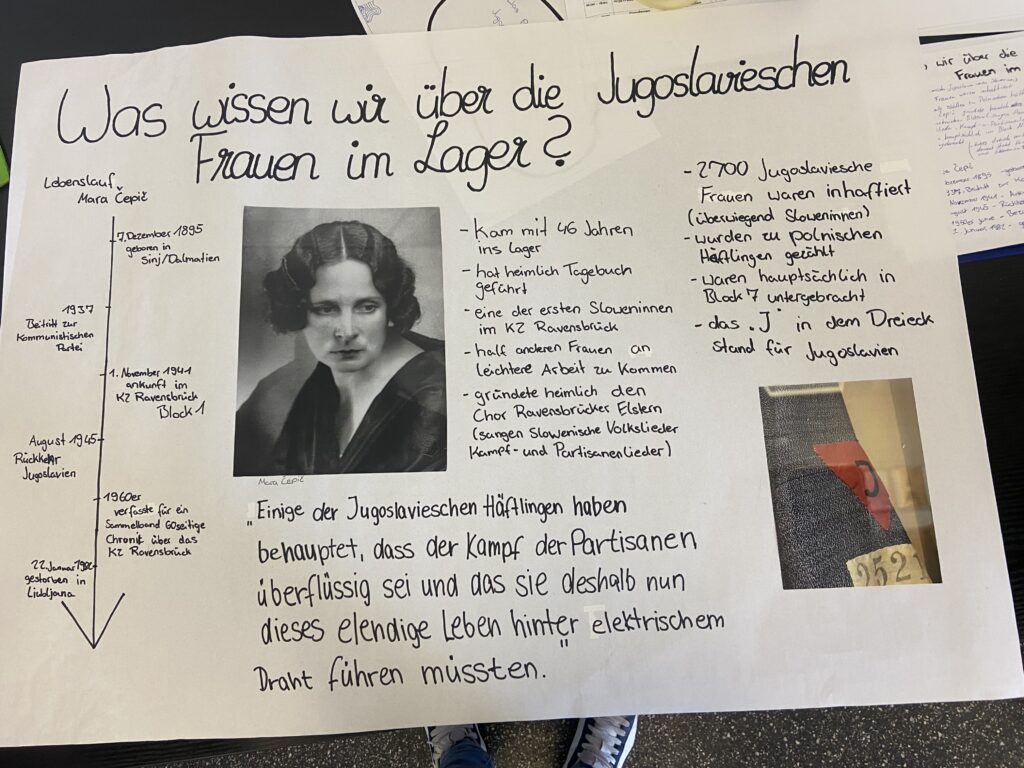 Was wissen wir über die Jugoslavieschen
Frauen im Lager?
Lebenslauf
Mara Čepič
7. Dezember 1895
geboren in
Sinj/Dalmatien
1937
Beitritt zur
Kommunistischen
Partei
1. November 1941
ankunft im
KZ Ravensbrück
Block 1
August 1945
Rückkehr
Jugoslavien
1960er
verfasste für ein
Sammelband 60seitige
Chronik über das
KZ Ravensbrück
22. Januar
gestorben in
Ljubljana
Mara Čepič
- Kam mit 46 Jahren
ins Lager
- hat heimlich Tagebuch
geführt
- eine der ersten Sloweninnen
im KZ Ravensbrück
- half anderen Frauen an
leichtere Arbeit zu Kommen
- gründete heimlich den
Chor Ravensbrücker Elstern
(sangen Slowenische Volkslieder
Kampf- und Partisanenlieder)
- 2700 Jugoslaviesche
Frauen waren inhaftiert
(überwiegend Sloweninnen)
- wurden zu polnischen
Häftlingen gezählt
- waren hauptsächlich in
Block 7 untergebracht
- das "J" in dem Dreieck
stand für Jugoslavien
J
2521
"Einige der Jugoslavieschen Häftlingen haben
behauptet, dass der Kampf der Partisanen
überflüssig sei und das sie deshalb nun
dieses elendige Leben hinter elektrischem
Draht führen müssten."
wir über die
Frauen im